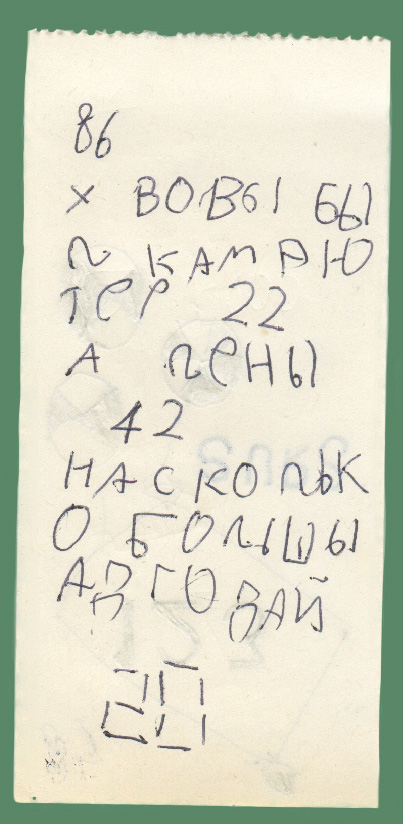 86
У ВОВЫ БЫ
Л КАМПЮ
ТЕР 22
А ЛЕНЫ
42
НАСКОЛЬК
О БОЛЬШЫ
АДГОДАЙ
20